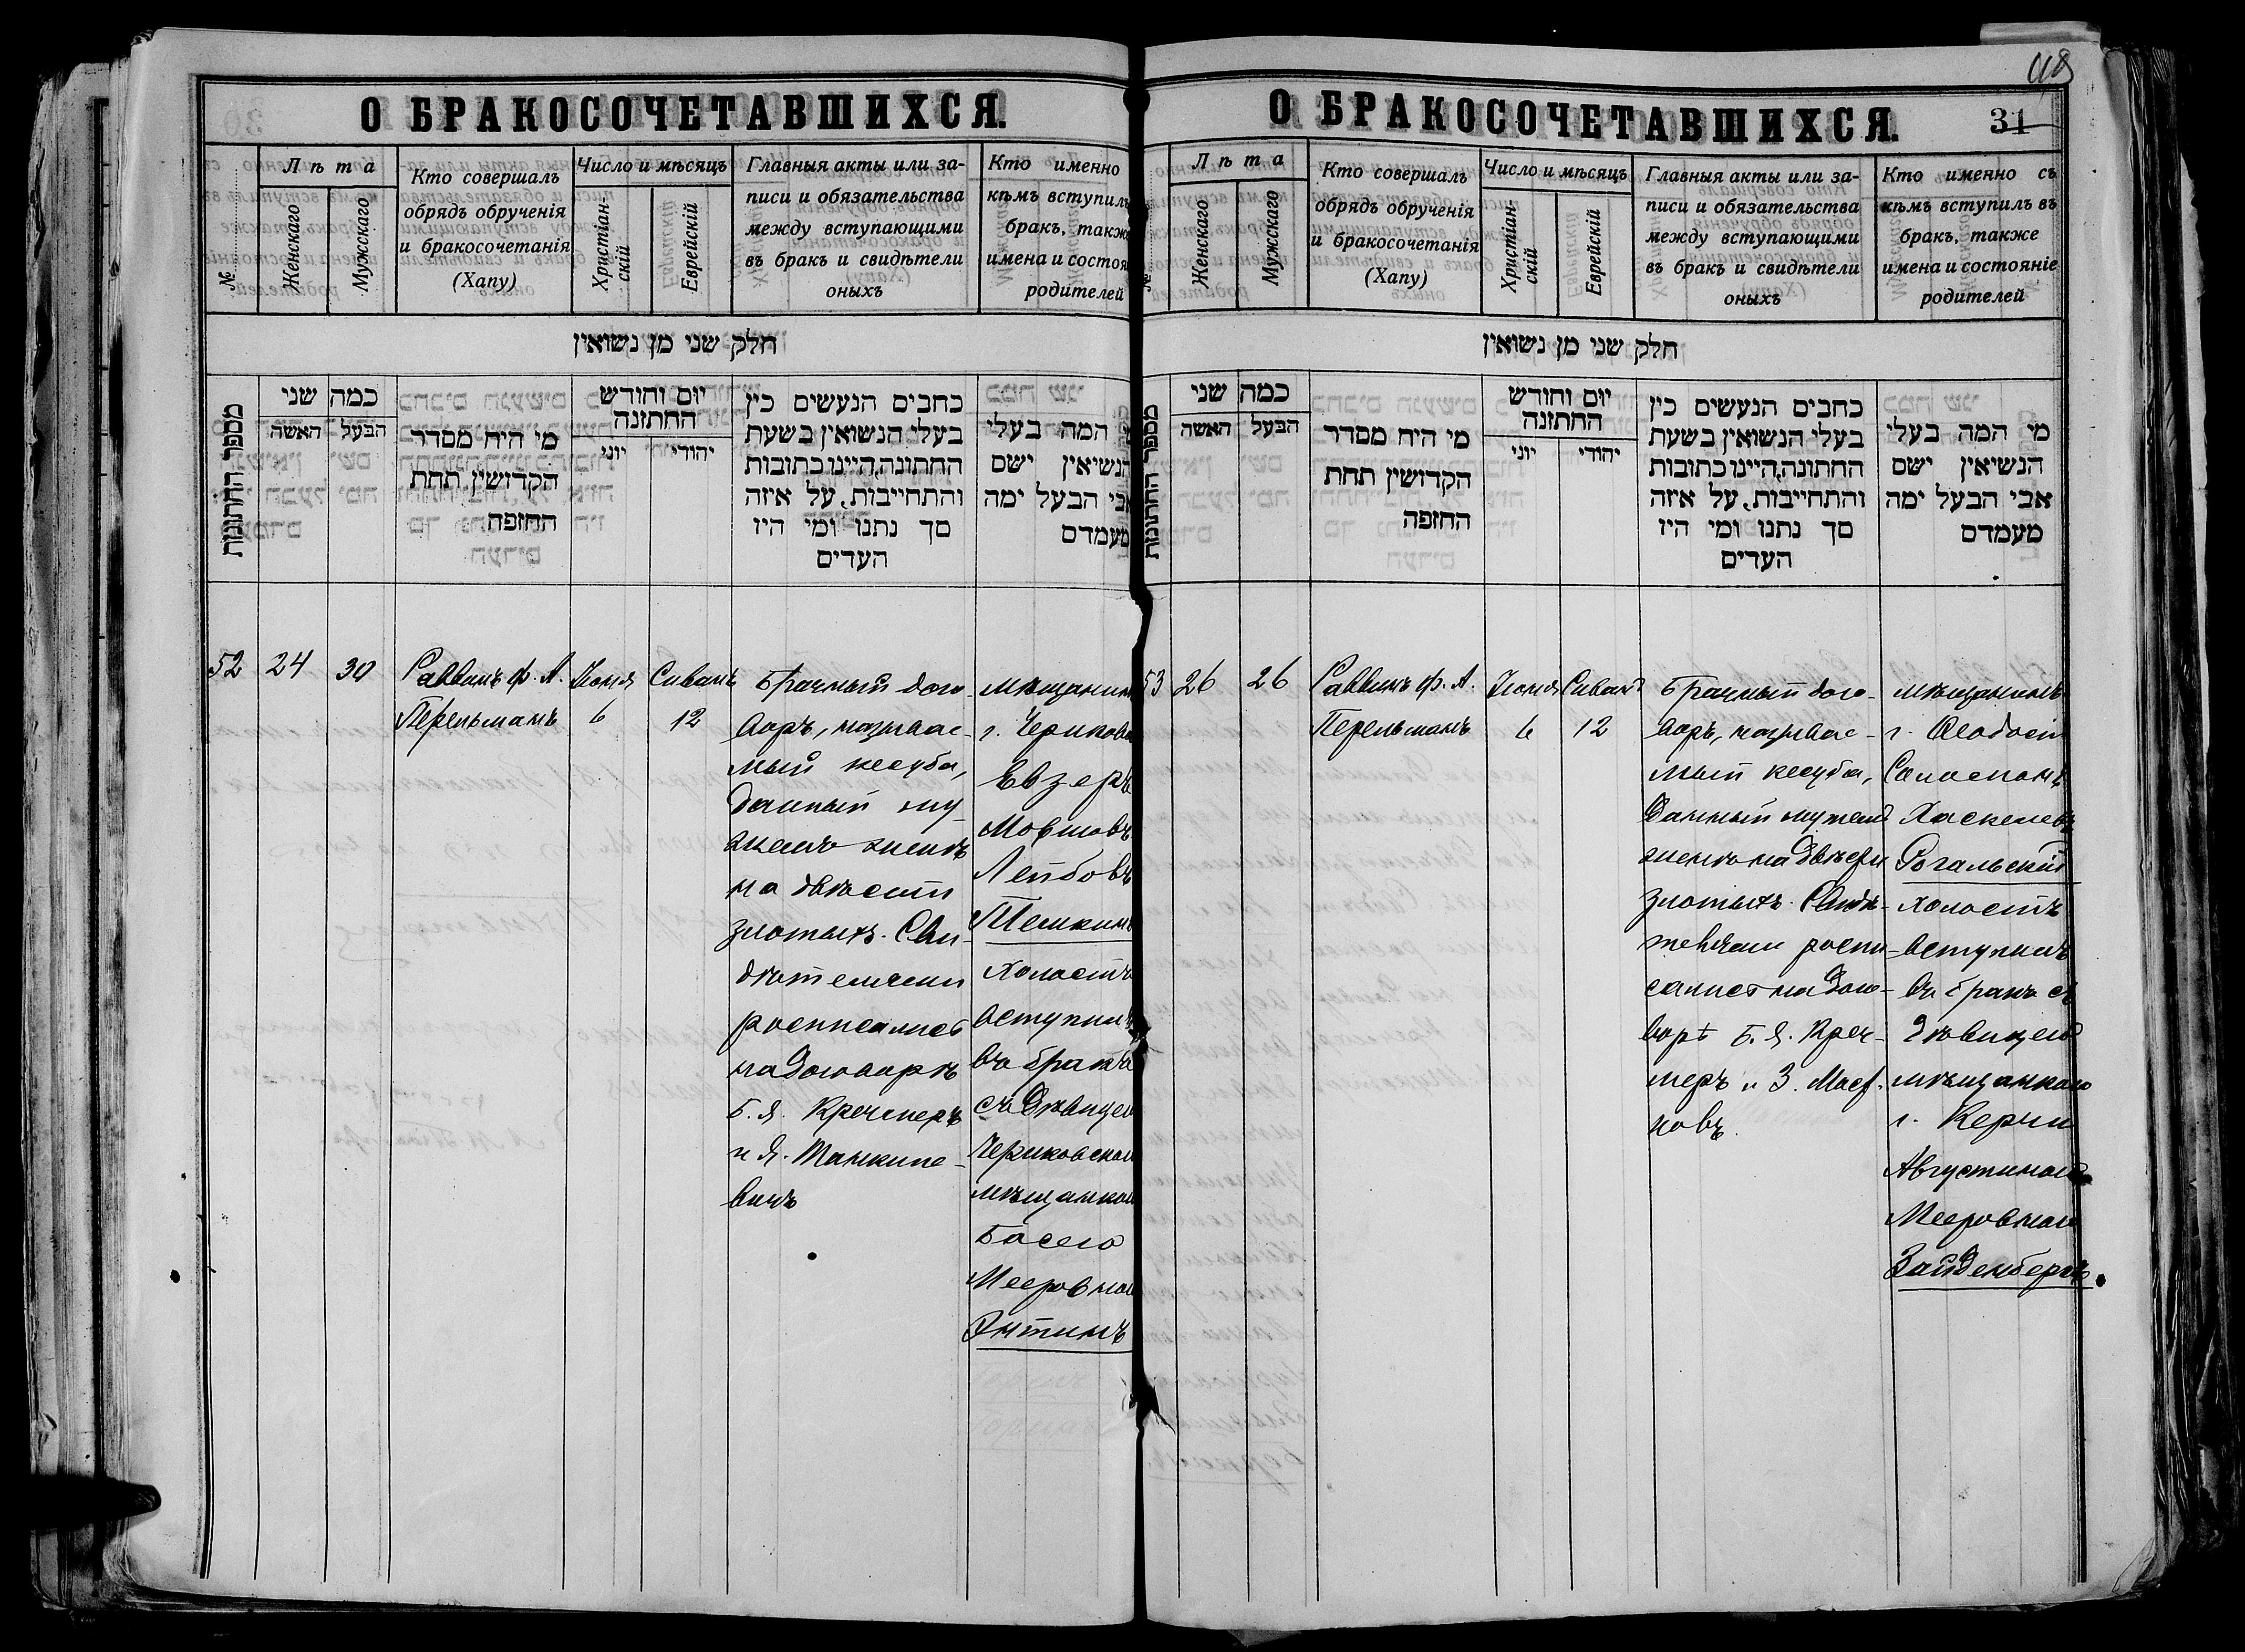 О БРАКОСОЧЕТАВШИХСЯ.
№
Лѣта
Женскаго
Мужскаго
Кто совершалъ
обрядъ обрученія
и бракосочетанія
(Хапу)
Число и мѣсяцъ
Христіан-
скій
Еврейскій
Главныя акты или за-
писи и обязательства
между вступающими
въ бракъ и свидѣтели
оныхъ
Кто именно
кѣмъ вступилъ
бракъ, также
имена и состоя
родителей
חלק שני מן נשואין
מספר החתונות
כמה שני
הבעל האשה
מי היח מסדר
הקדושין תחת
החזפה
יום וחודש
החתזנה
יהודי יוני
כחבים הנעשים כין
בעלי הנשואין בשעת
החתונה,היינו כתובות
והתחייבות, על איזה
סך נתנו ומי היז
העדים
המה בעלי
הנשיאין ישם
אבי הבעל ימה
מעמדם
52
24
30
Раввинъ Ф. А.
Перельманъ
Іюня
6
Сиванъ
12
Брачный дого-
воръ, называе-
мый кесуба,
данный му-
жемъ женѣ
на двѣсти
злотыхъ. Сви-
дѣтелями
росписались
на договорѣ
Б. Я. Кречмеръ
и Я. Танкиле-
вичъ
мѣщанинъ
г. Черикова
Евзеръ
Мовшовъ
Лейбовъ
Пешкинъ
холостъ
вступилъ
въ бракъ
съ дѣвицею
Чериковскою
мѣщанкою
Басею
Мееровною
Энтинъ
О БРАКОСОЧЕТАВШИХСЯ.
31
48
№
Лѣта
Женскаго
Мужскаго
Кто совершалъ
обрядъ обрученія
и бракосочетанія
(Хапу)
Число и мѣсяцъ
Христіан-
скій
Еврейскій
Главныя акты или за-
писи и обязательства
между вступающими
въ бракъ и свидѣтели
оныхъ
Кто именно съ
кѣмъ вступилъ въ
бракъ, также
имена и состояніе
родителей
חלק שני מן נשואין
מספר החתונות
כמה שני
הבעל האשה
מי היח מסדר
הקדושין תחת
החזפה
יום וחודש
החתזנה
יהודי יוני
כחבים הנעשים כין
בעלי הנשואין בשעת
החתונה,היינו כתובות
והתחייבות, על איזה
סך נתנו ומי היז
העדים
מי המה בעלי
הנשיאין ישם
אבי הבעל ימה
מעמדם
53
26
26
Раввинъ Ф. А.
Перельманъ
Іюня
6
Сиванъ
12
Брачный дого-
воръ, называе-
мый кесуба,
данный мужемъ
женѣ на двѣсти
злотыхъ. Свидѣ-
телями роспи-
сались на дого-
ворѣ Б. Я. Креч-
меръ и З.
мѣщанинъ
г. Ѳеодосіи
Соломонъ
Хаскелевъ
Рогальскій
холостъ
вступилъ
въ бракъ съ
дѣвицею
мѣщанкою
г. Керчи
Августиною
Мееровною
Зайденбергъ.